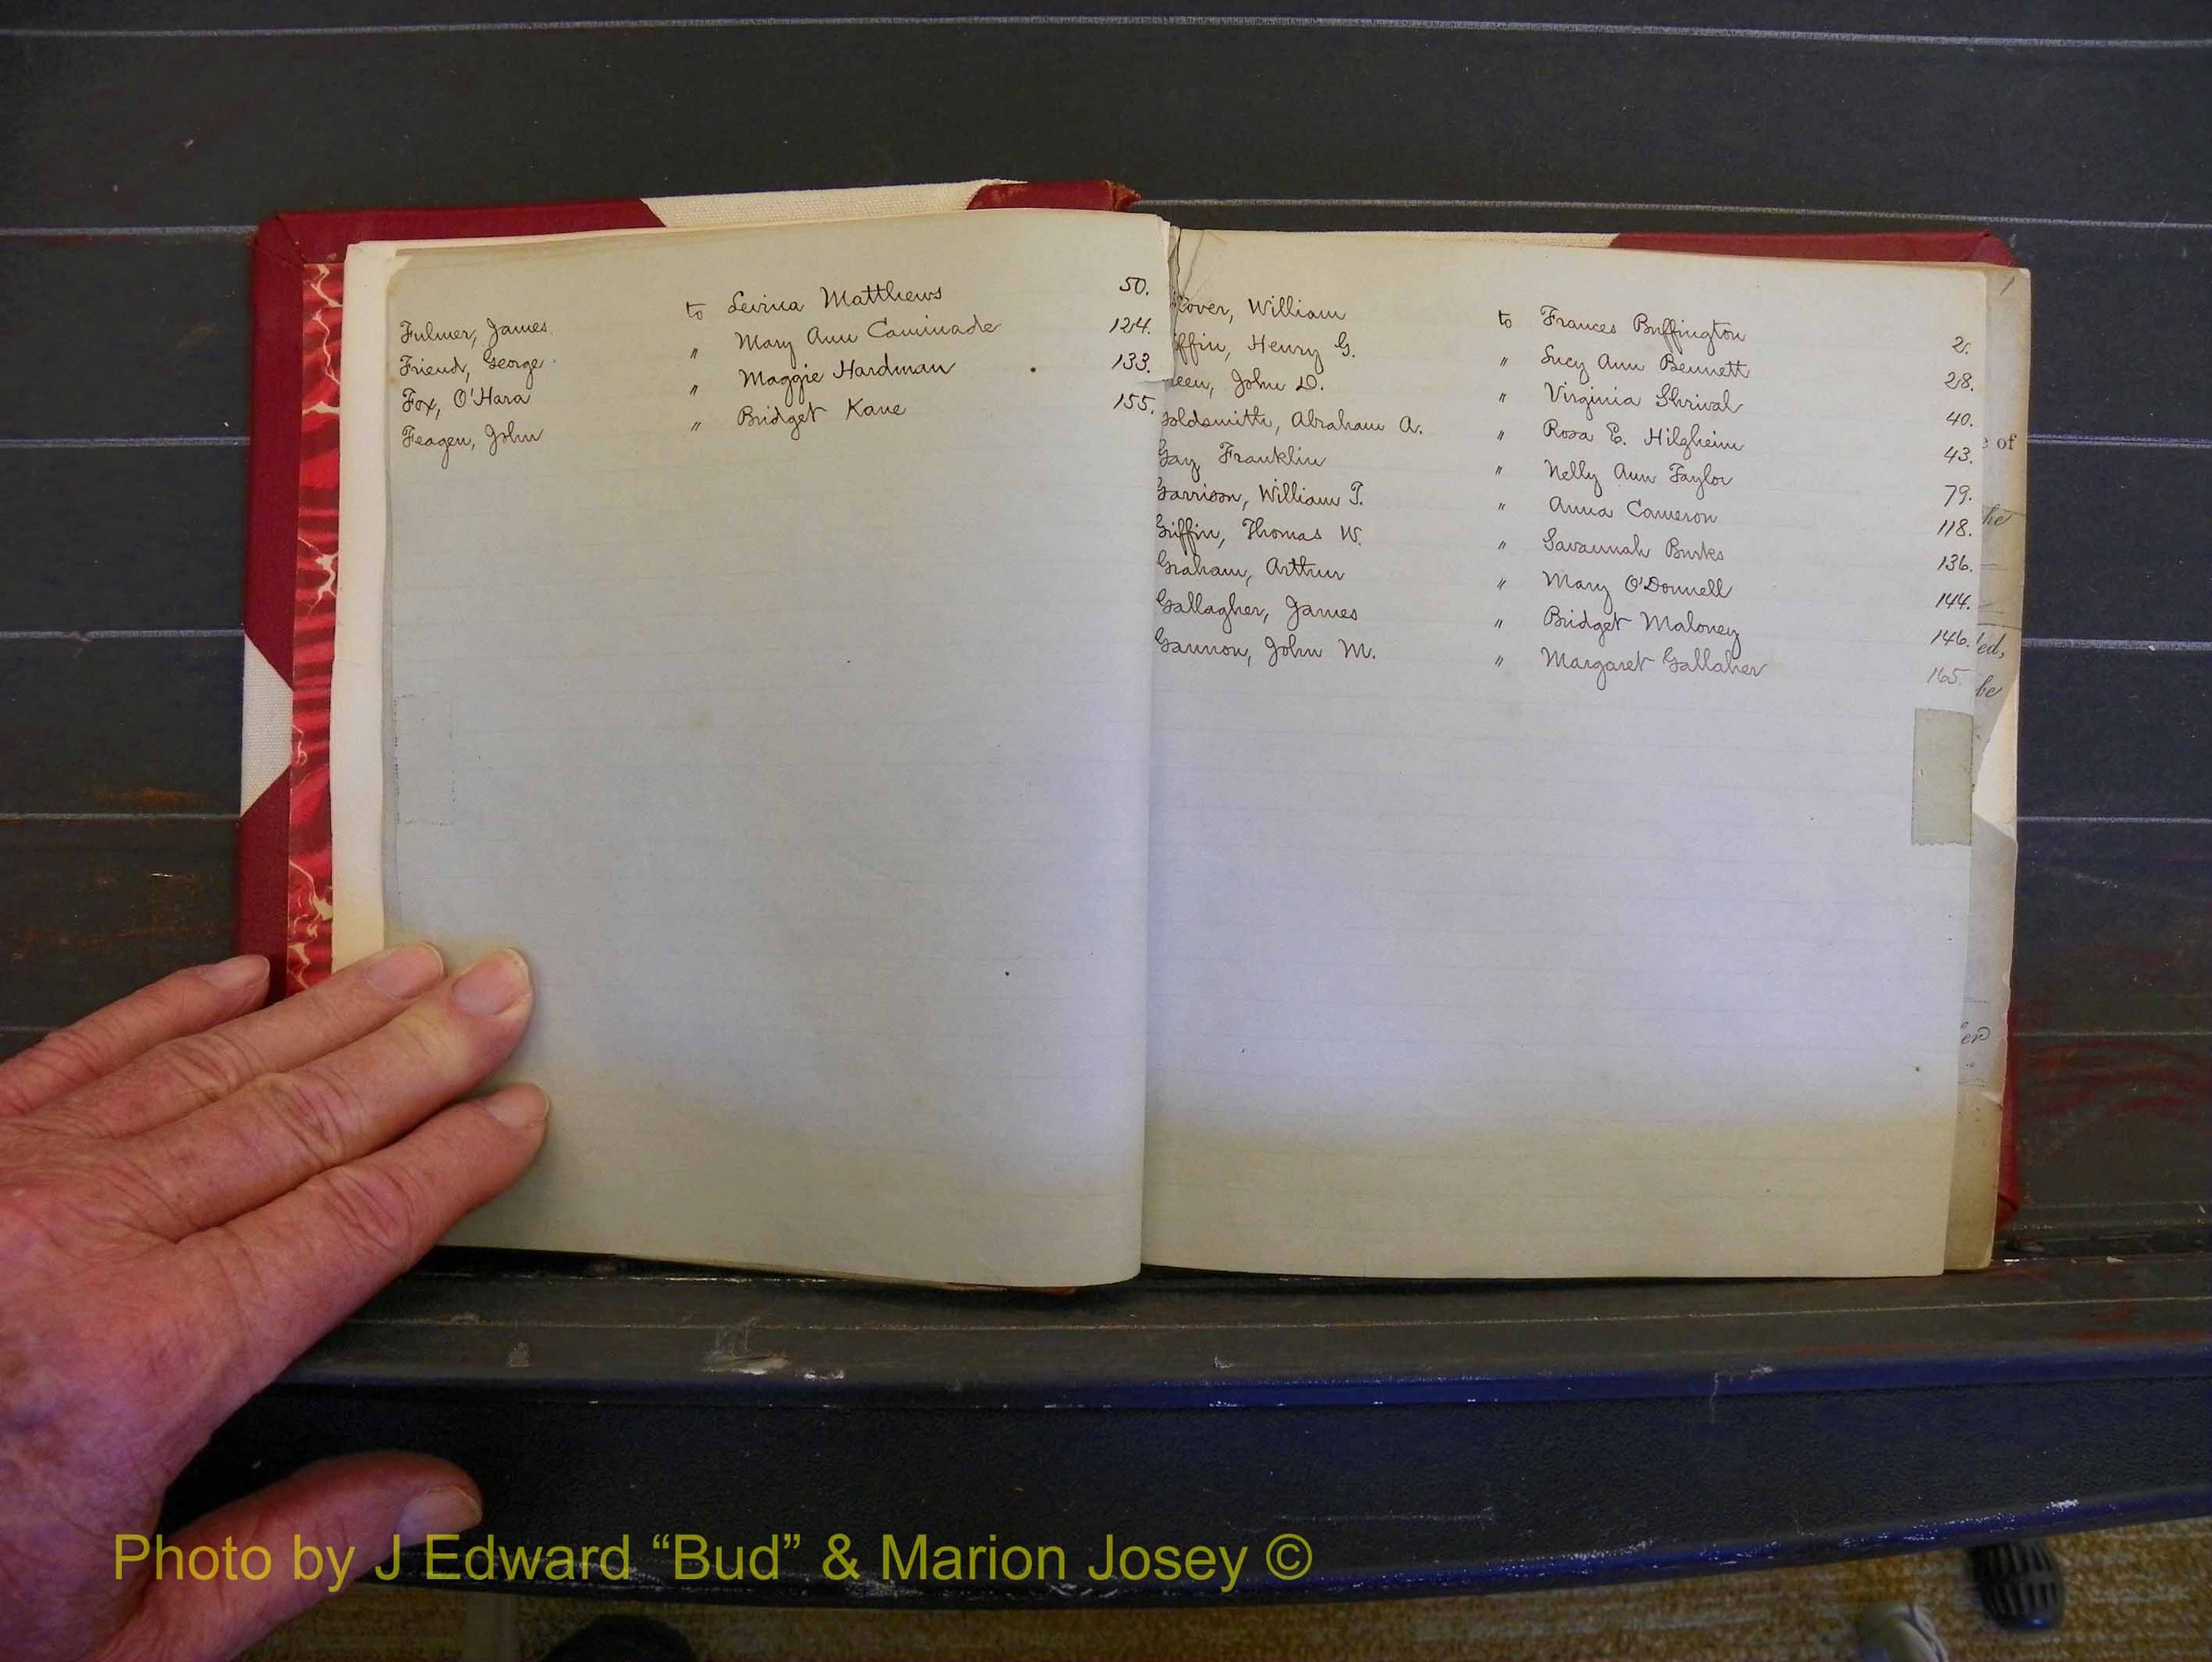 Fulmer, James. to Levina Matthews 50.
Friend, George. " Mary Ann Caminade 124.
Fox, O'Hara " Maggie Hardman 133.
Feagen, John " Bridget Kane 155.
lover, William to Frances Buffington 2.
iffin, Henry G. " Lucy Ann Bennett 28.
reen, John D. " Virginia Shrival 40.
Goldsmith, Abraham A. " Rosa E. Hilzheim 43.
Gay, Franklin " Nelly Ann Taylor 79.
Garrison, William T. " Anna Cameron 118.
Griffin, Thomas W. " Savannah Burks 136.
Graham, Arthur " Mary O'Donnell 144.
Gallagher, James " Bridget Maloney 146.
Gannon, John M. " Margaret Gallaher 165.
e of
he
ed,
be
er
Photo by J Edward “Bud” & Marion Josey ©